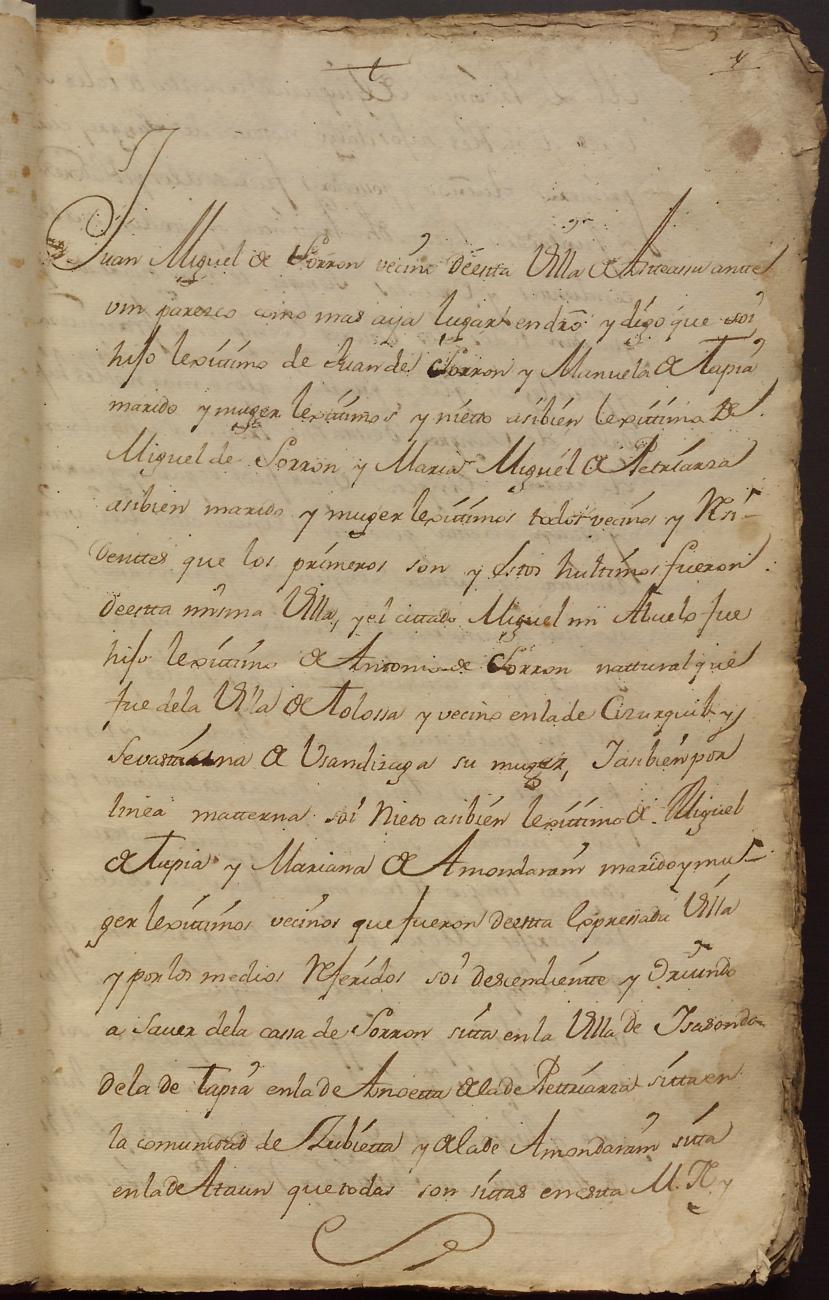 Juan Miguel de Sorron vecino deesta Villa de Asteassu antte
vm parezco como mas aya lugar en dro y digo que soi
hijo lexittimo de Juan de Sorron y Manuela de Tapia
marido y muger lexittimos y nietto asibien lexittimo de
Miguel de Sorron y Maria Miguel de Petriarza
asibien marido y muger lexittimos todos vecinos y Resi-
denttes que los primeros son y estos hultimos fueron
deestta misma Villa, y el cittado Miguel mi Abuelo fue
hijo lexittimo de Antonio de Sorron natturalque
fue dela Villa de Tolossa y vecino enlade Cizurquil y
Sevastiana de Usandizaga su muger, Iasibien por
linea matterna soi Nieto asibien lexittimo de Miguel
de Tapia y Mariana de Amondarain marido y mu-
ger lexittimos vecinos que fueron deestta Expressada Villa
y por los medios Referidos soi descendientte y Oriundo
a saver dela cassa de Sorron sitta en la Villa de Isasondo
dela de Tapia enlade Anoetta dela de Petriarza sitta en
la comunidad de Zubietta y dela de Amondarain sitta
enlade Ataun que todas son sittas en estta M. N. y